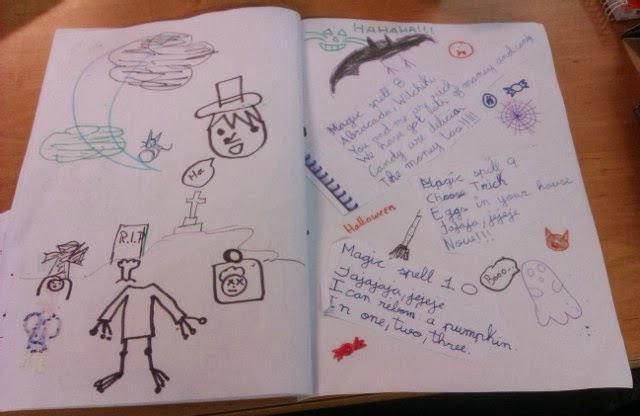 Ha
R.I.P
HAHAHA!!!
Magic spell 8
Abracada Witchik
You and me are rich
We have got lots of money and candy
Candy are delicious
The money too!!!!
Magic spell 9
Choose Trick
Eggs in your house
Jajaja, jejeje
Now!!!
Halloween
Magic spell 1
Jajajaja, jejeje
I can reborn a pumpkin.
In one, two, three.
Booo...